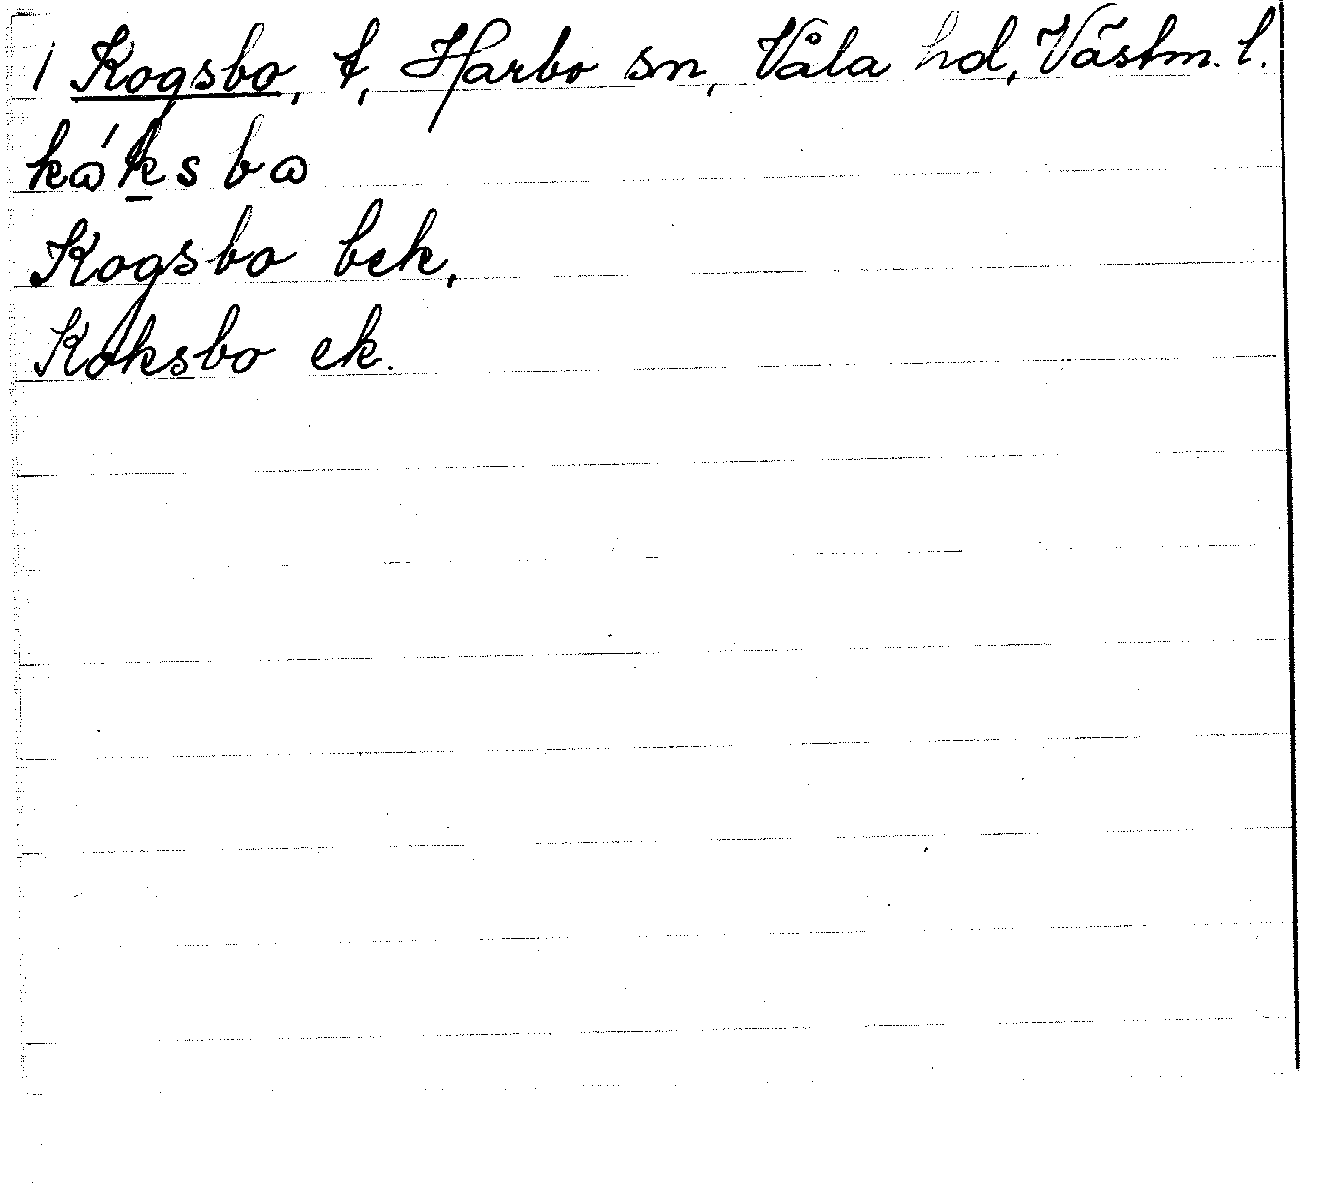 1 Kogsbo, t, Harbo sn, Våla hd, Västm. l.
kα´ksbα
Kogsbo bek,
Koksbo ek.